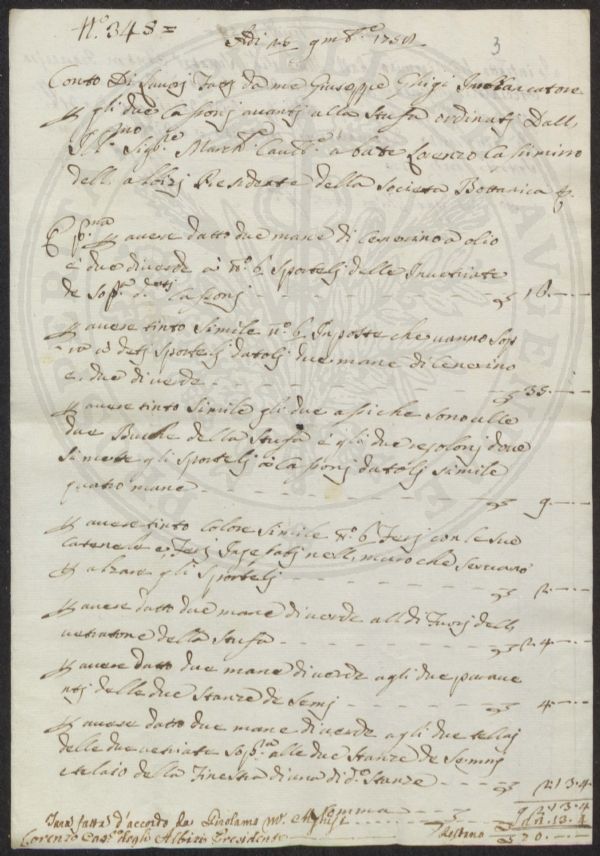 N.° 348 =
3
Adi 16 9mb.e 1750
Conto Di lavorj Fattj da me Giuseppe Ghigi Imbiaccatore
p gli due Cassonj avantj alla Stufa ordinatj Dall,
Ill.mo Sig.re March.e Cav.re abate Lorenzo Casimirro
dell, albizj Presidente della Societa Bottanica
P.ma p avere datto due mane di Cenerino a olio
e due di verde a n.° 6 Sportelj delle Invetriate
de Sop.i detj Cassonj 18
p avere tinto Simile n.° 6 Imposte che vanno Sop
ra a detj Sportelj datolj due mane di Cenerino
e due di verde 35
p avere tinto Simile gli due assi che sono alle
due Buche della Stufa e gli due regolonj dove
si mette gli Sportelj a Cassonj datolj Simile
quatro mane 9
p avere tinto Colore Simile n.° 6 Ferj con le sue
Catenele e Ferj Ingessatj nell, muro che servano
p alzare gli Sportelj 2
p avere datto due mane di verde all di Fuorj dell,
vetratone della Stufa 24
p avere datto due mane di verde agli due parave
ntj delle due Stanze de Semj 4
p avere datto due mane di verde agli due tellaj
delle due vetriate Sop.ra alle due Stanze de Semmj
e telaio della Finestra di una di d.e Stanze 2.13.4
Somma 13.4
Tara fatta d'accordo da Girolamo 13.4
Lorenzo Cas.o degli Albizi Presidente Restano 70